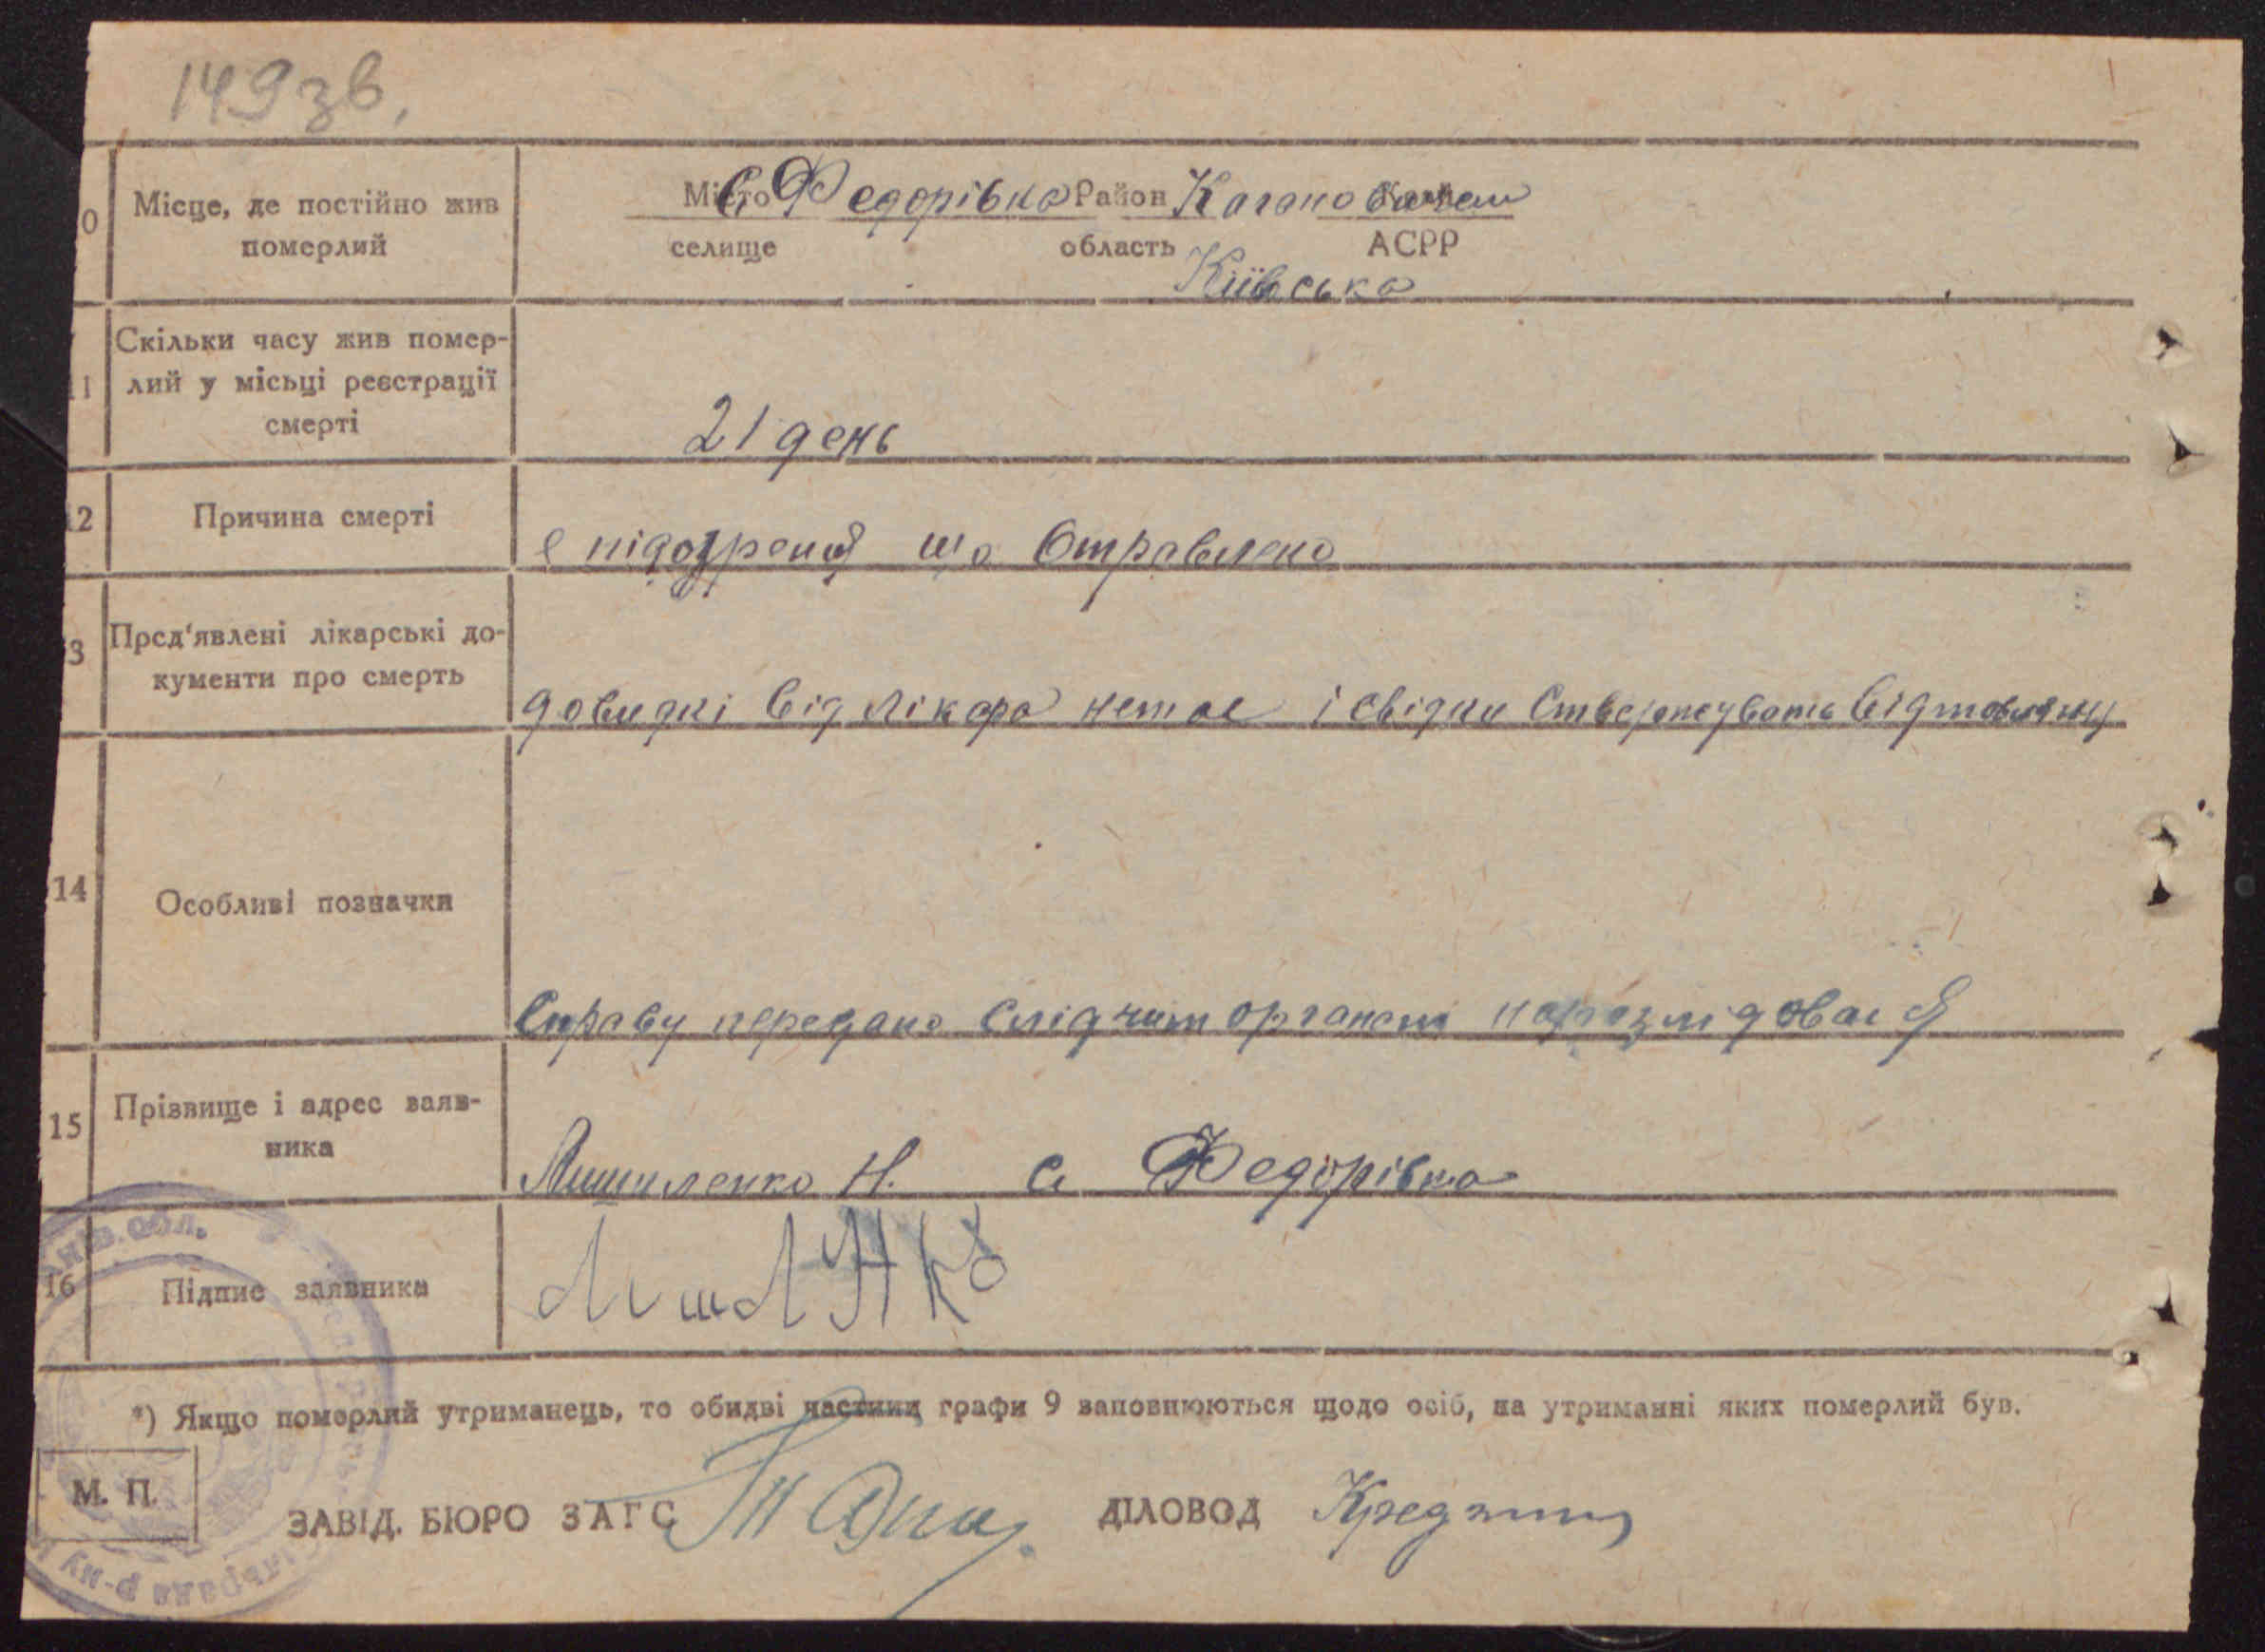 149 зв.
10 Місце, де постійно жив померлий
Місто С Федорівка Район Каганович Край
селище область АСРР
Київська
11 Скільки часу жив помер-
лий у місьці реєстрації
смерті
21 день
12 Причина смерті
є підозреня що Отравлено
13 Пред'явлені лікарські до-
кументи про смерть
довидкі від лікара немає і свідки Стверджувать відмовляну
14 Особливі позначки
Справу передано Слідчим органам на розслідован я
15 Прізвище і адрес заяв-
ника
Лишиленко Н. С Федорівка
16 Підпис заявника
ЛишЛНко
*) Якщо померлий утриманець, то обидві частини графи 9 заповнюються щодо осіб, на утриманні яких померлий був.
М. П.
ЗАВІД. БЮРО ЗАГС ДІЛОВОД
обл.
рада р-ну